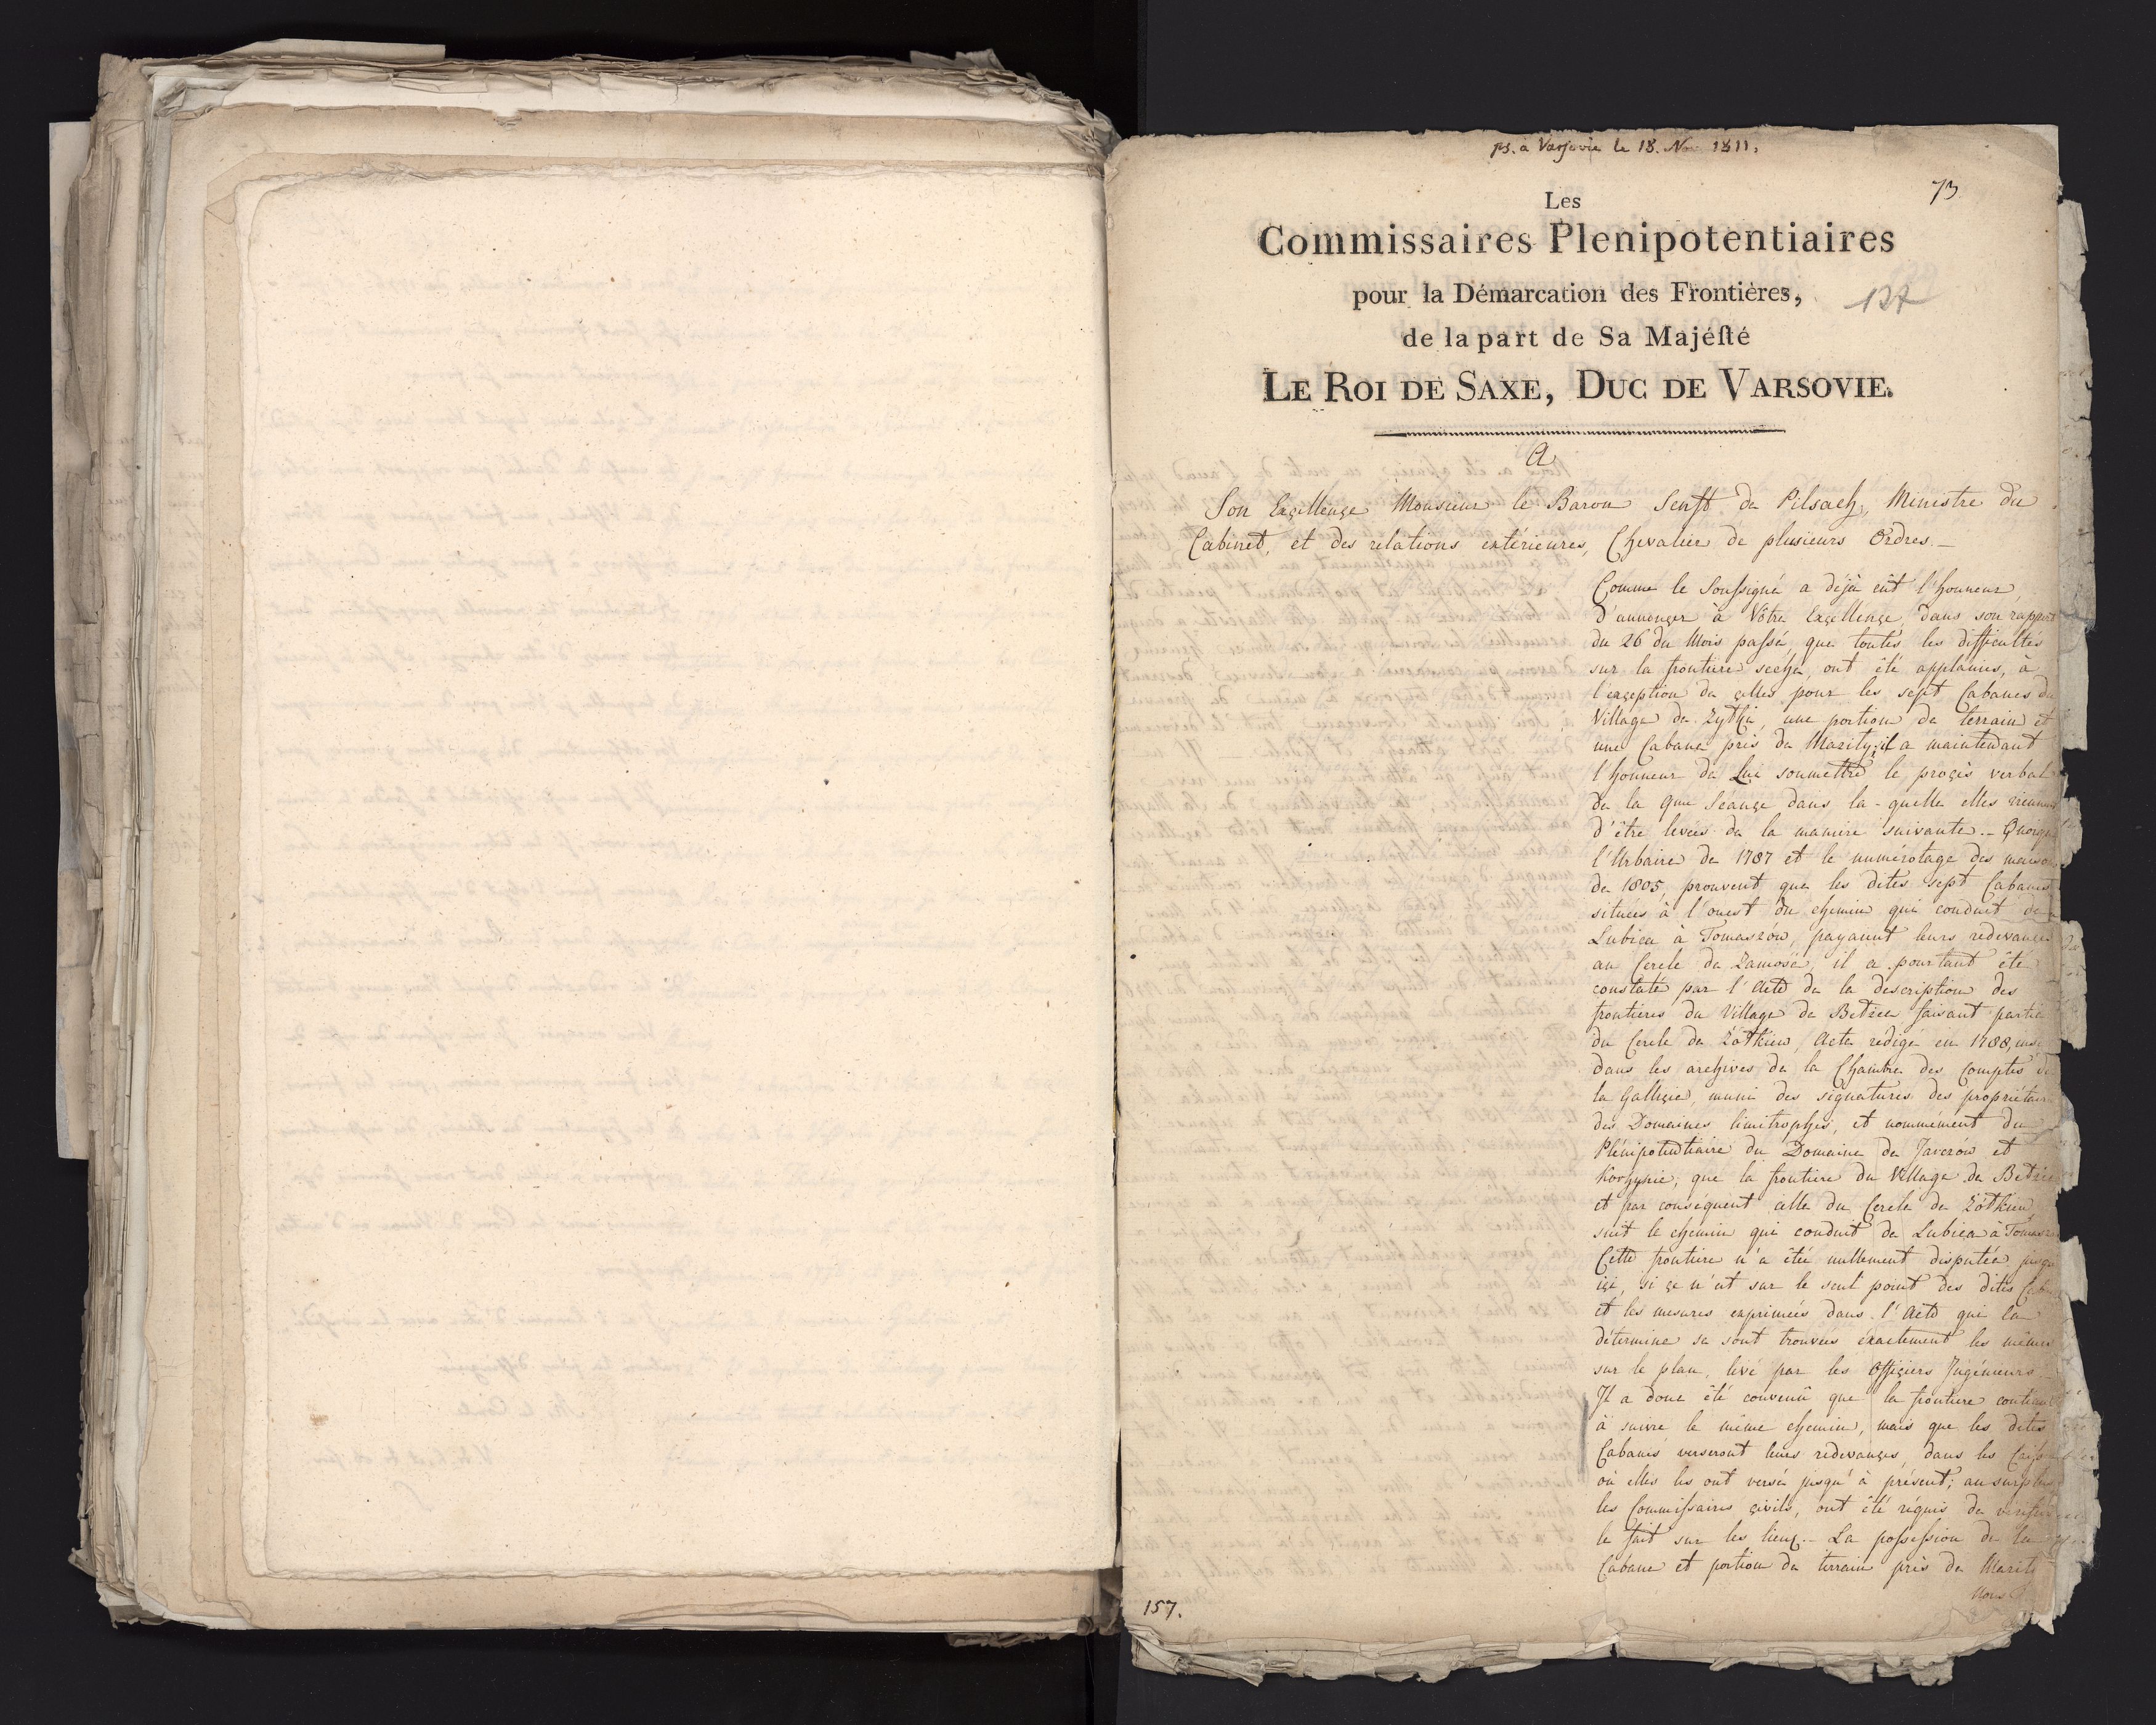 ps. a Varsovie le 18. Nov 1811.
73.
Les
Commissaires Plenipotentiaires
pour la Démarcation des Frontiéres,
127
de la part de Sa Majéſté
LE ROI DE SAXE, DUC DE VARSOVIE.
A
Son Excellençe Monsieur le Baron Senft de Pilsach, Ministre du
Cabinet, et des relations extérieures, Chevalier de plusieurs Ordres.—
Comme le Soussigné a déjà eût l'honneur,
d'annonçer à Vôtre Excellençe, dans son rapport
du 26 du Mois passé, que toutés les difficultés
sur la frontiere seche, ont êté applanies, à
l'exçeption de çelles pour les sept Cabanes du
Village de Zytki, une portion de terrain et
une Cabane près de Marity; il a maintenant
l'honneur de Lui soumettre le proçès verbal
de la 9me Séançe dans la-quelle elles viennent
d'être levées de la maniere suivante.— Quoique
l'Urbaire de 1787 et le numérotage des maisons
de 1805, prouvent, que les dites sept Cabanes
situées à l'ouest du chemin qui conduit de
Lubica à Tomaszów, payaient leurs redevançes
au Cercle de Zamosć, il a pourtant êté
constaté par l'Acte de la description des
frontieres du Village de Betzec faisant partie
du Cercle de Zótkiew, Acte redigé en 1788,
dans les archives de la Chambre des Comptes de
la Galliçie, muni des signatures des propriétaires
des Domaines limitrophes, et nommément du
Plénipotentiaire du Domaine de Jarczów et
Korhynie, que la frontiere du Village de Betzec
et par conséquent celle du Cercle de Zótkiew,
suit le chemin qui conduit de Lubica à
Cette frontiere n'a êtée nullement disputée, jusqu'
içi, si çe n'ut sur le seul point des dites
et les mesures exprimées dans l'Acte qui la
détermine se sont trouvées exactement les mêmes
sur le plan, levé par les Offiçiers Ingénieurs.
Il a donc êté convenû que la frontiere
à suivre le même chemin, mais que les dites
Cabanes verseront leurs redevançes, dans les
où elles les ont versés jusqu'à présent; au surplus
les Commissaires çivils, ont êté réquis de
le fait sur les lieux.— La possession de la
Cabane et portion de terrain près de Marity
Nous
157.